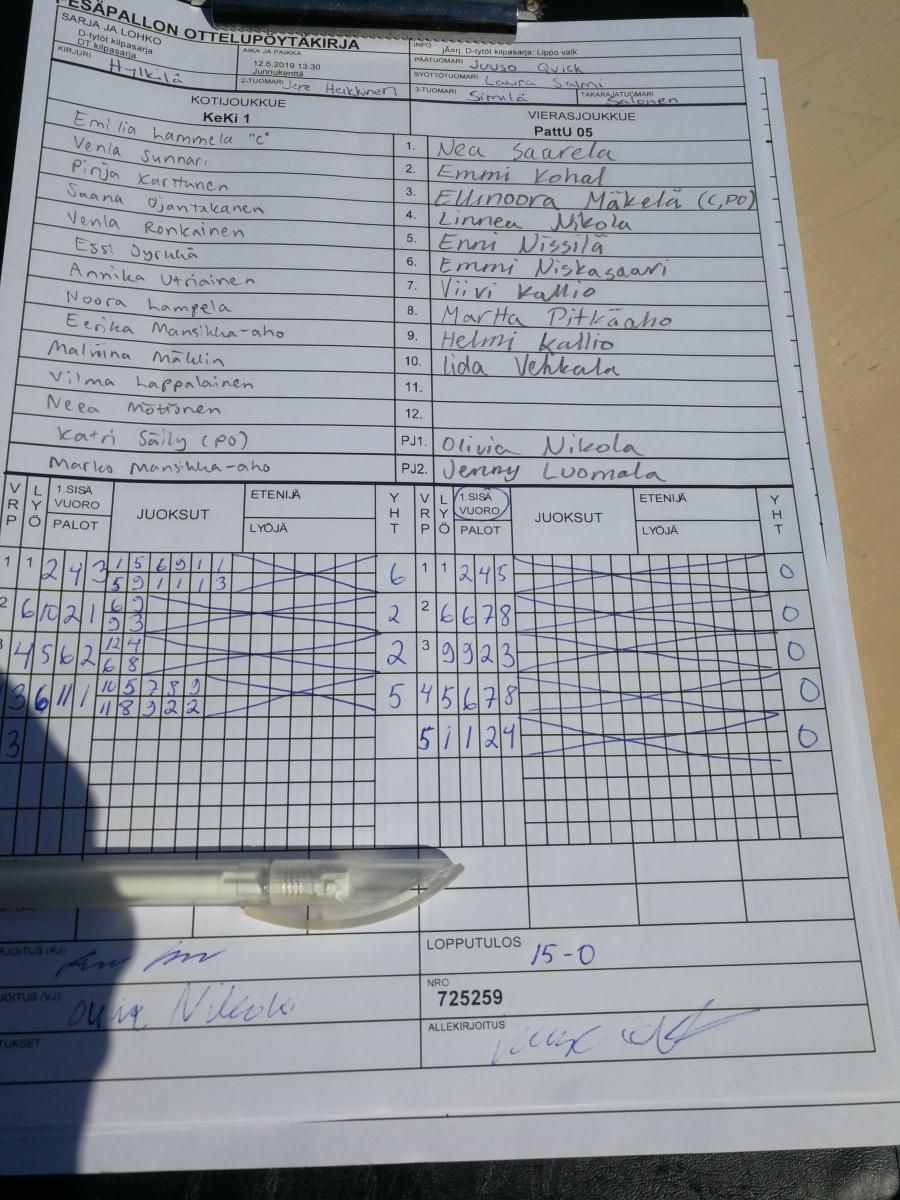 PESÄPALLON OTTELUPÖYTÄKIRJA
SARJA JA LOHKO
D-tytöt kilpasarja
DT kilpasarja
AIKA JA PAIKKA
12.6.2019 13:30
Junnukenttä
INFO jÄerj. D-tytöt kilpasarja: Lippo valk
PÄÄTUOMARI Juuso Quick
SYÖTTÖTUOMARI Laura Salmi
KIRJURI Hylkilä
2-TUOMARI Jere Heikkinen
3-TUOMARI Similä
TAKARAJATUOMARI Salonen
KOTIJOUKKUE
KeKi 1
VIERASJOUKKUE
PattU 05
Emilia Lammela "C"
1. Nea Saarela
Venla Sunnari
2. Emmi Kohal
Pinja Karttunen
3. Ellinoora Mäkelä (C,PO)
Saana Ojantakanen
4. Linnea Nikola
Venla Ronkainen
5. Enni Nissilä
Essi Jyrkkä
6. Emmi Niskasaari
Annika Utriainen
7. Viivi Kallio
Noora Lampela
8. Martta Pitkäaho
Eerika Mansikka-aho
9. Helmi Kallio
Malviina Mäklin
10. Iida Vehkala
Vilma Lappalainen
11.
Neea Möttönen
12.
Katri Säily (PO)
PJ1. Olivia Nikola
Marko Mansikka-aho
PJ2. Jenny Luomala
VRP LYÖ 1.SISÄ VUORO PALOT JUOKSUT ETENIJÄ LYÖJÄ YHT
VRP LYÖ 1.SISÄ VUORO PALOT JUOKSUT ETENIJÄ LYÖJÄ YHT
1 1 2 4 3 1 5 6 9 1 1 6
5 9 1 1 1 3
1 1 2 4 5 0
2 6 10 2 1 6 9 2
9 3
2 6 6 7 8 0
4 5 6 2 12 4 2
6 8
3 9 9 2 3 0
3 6 11 1 10 5 7 8 9 5
11 8 9 2 2
4 5 6 7 8 0
3
5 1 1 2 4 0
RJOITUS (KJ)
LOPPUTULOS 15-0
JOITUS (VJ) Olivia Nikola
NRO
725259
TUKSET
ALLEKIRJOITUS